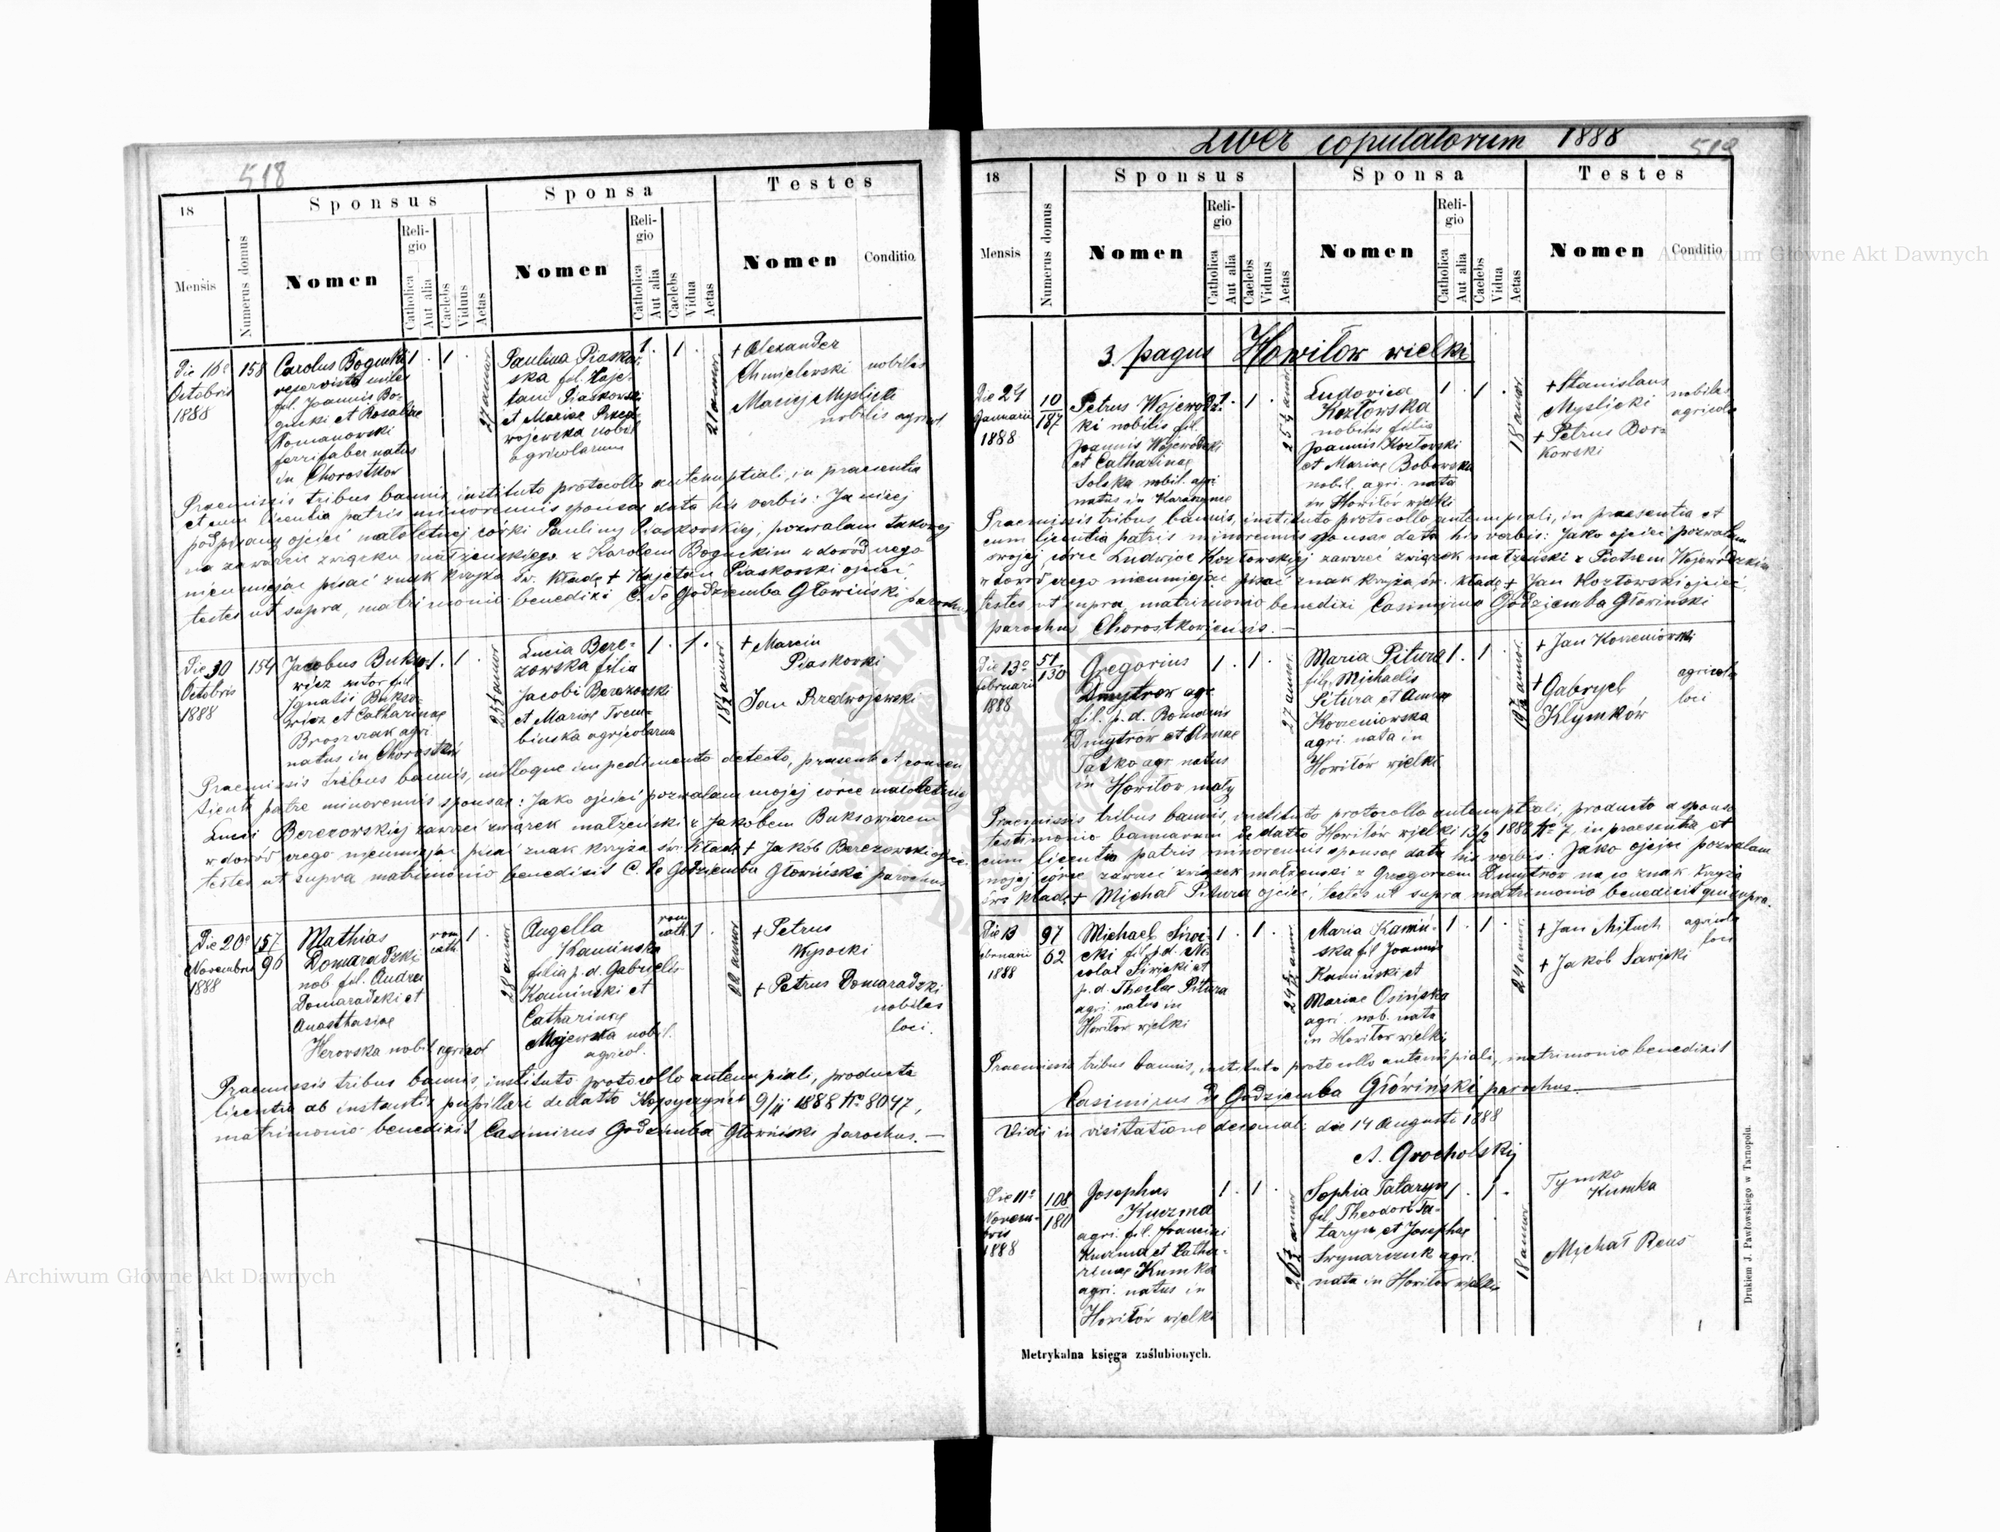 518
18
Mensis
Numerus domus
Sponsus
Nomen
Religio
Catholica
Aut alia
Caelebs
Viduus
Aetas
Sponsa
Nomen
Religio
Catholica
Aut alia
Caelebs
Vidua
Aetas
Testes
Nomen
Conditio
Die 16a
Octobris
1888
158
Carolus Bogucki
reservista miles
fil. Joannis Bo-
gucki et Rosaliae
Romanowski
ferrifaber natus
in Chorostkow
1 . 1 .
27 annor
Paulina Piaskow-
ska fil. Kaje-
tani Piaskowski
et Mariae Przed-
wojewska nobil
agricolarum
1 . 1 .
21 annor.
+ Alexander
Chmielewski nobiles
Maciej Myslicki
nobilis agricol
Praemissis tribus bannis, instituto protocollo antenuptiali, in praesentia
et cum licentia patris minorennis sponsae data his verbis: Ja niżej
podpisany ojciec małoletniej córki Pauliny Piaskowskiej, pozwalam takowej
na zawarcie związku małżeńskiego z Karolem Boguckim w dowód czego
nieumiejąc pisać znak krzyża św. kładę + Kajetan Piaskowski ojciec.
testes ut supra, matrimonio benedixi C. de Godziemba Głowiński parochus
Die 30
Octobris
1888
154
Jacobus Bukso-
wicz sutor fil
Ignatii Bukso-
wicz et Catharinae
agri.
natus in Chorostków
1 . 1 .
25 1/2 annor
Lucia Bere-
zowska filia
Jacobi Berezowski
et Mariae Trem-
binska agricolarum
1 . 1 .
annor.
+ Marcin
Piaskowki
Jan Przedwojewski
Praemissis tribus bannis, nulloque impedimento detecto, praesente et consen
tiente patre minorennis sponsae: Jako ojciec pozwalam mojej córce małoletniej
Lucii Berezowskiej zawrzeć związek małżeński z Jakobem Buksowiczem
w dowód czego nieumiejąc pisać znak krzyża św. kładę + Jakób Berezowski ojciec.
testes ut supra matrimonio benedixit C. de Godziemba Głowiński parochus
Die 20a
Novembris
1888
157
96
Mathias
Domaradzki
nob fil. Andreae
Domaradzki et
Anasthasiae
Herowska nobil. agricol
rom
cath.
1 .
28 annor
Angella
Kaminska
filia p. d. Gabrielis
Kamiński et
Catharinae
Majewska nobil.
agricol.
rom
cath
1 .
22 annor
+ Petrus
Wysocki
+ Petrus Domaradzki
nobiles
loci.
Praemissis tribus bannis, instituto protocollo antenuptiali, producta
licentia ab instantia pupillari de datto Kopyczyńce 9/11 1888 No 8047,
matrimonio benedixit Casimirus Godziemba Głowiński parochus. —
Liber copulatorum 1888
18
Mensis
Numerus domus
Sponsus
Nomen
Religio
Catholica
Aut alia
Caelebs
Viduus
Aetas
Sponsa
Nomen
Religio
Catholica
Aut alia
Caelebs
Vidua
Aetas
Testes
Nomen
Conditio
3. pagus Howiłow wielki
Die 24
Januarii
1888
10
187
Petrus Wojewodz-
ki nobilis fil.
Joannis Wojewódzki
et Catharinae
Solska nobil. agri
natus in
1 . 1 .
annor
Ludovica
Kozłowska
nobilis filia
Joannis Kozłowski
et Mariae Bobowska
nobil. agri. nata
in Howiłów wielki
1 . 1 .
18 annor.
+ Stanislaus
Myslicki nobiles
agricolae
+ Petrus Bor-
kowski
Praemissis tribus bannis, instituto protocollo antenuptiali, in praesentia et
cum licentia patris minorennis sponsae data his verbis: Jako ojciec pozwalam
swojej córce Ludwice Kozłowskiej zawrzeć związek małżeński z Piotrem Wojewódzkim
w dowód czego nieumiejąc pisać znak krzyża św. kładę + Jan Kozłowski ojciec.
testes ut supra, matrimonio benedixi Casimirus Godziemba Głowiński
parochus Chorostkoviensis. —
Die 13a
februarii
1888
51
130
Gregorius
Dmytrow agr
fil. p. d. Romanis
Dmytrow et Annae
Tatko agr natus
in Howiłow mały
1 . 1 .
27 annor.
Maria Pitura
fil. Michaelis
Pitura et Annae
Korzeniowska
agri. nata in
Howiłów wielki
1 . 1 .
19 1/2 annor.
+ Jan Korzeniowski
agricolae
+ Gabryel loci
Kłymków
Praemissis tribus bannis, instituto protocollo antenuptiali, producto a sponso
testimonio bannorum de datto Howiłów wielki 13/2 1888 No 7, in praesentia et
cum licentia patris minorennis sponsae data his verbis: Jako ojciec pozwalam
mojej córce zawrzeć związek małżeński z Gregorem Dmytrów na co znak krzyża
św. kładę + Michał Pitura ojciec, testes ut supra, matrimonio benedixit qui supra.
Die 13
februarii
1888
97
62
Michael Siwic-
ki fil p. d. Ni-
colai Siwicki et
p. d. Theclae Pitura
agri. natus in
Howiłow wielki
1 . 1 .
annor
Maria Kamiń-
ska fil Joannis
Kamiński et
Mariae Osińska
agri. nob. nata
in Howiłow wielki
1 . 1 .
24 annor.
+ Jan Mituch agricolae
loci
+ Jakob Sawicki
Praemissis tribus bannis, instituto protocollo antenuptiali, matrimonio benedixit
Casimirus de Godziemba Głowiński parochus. —
Vidi in visitatione decanali die 14 Augusti 1888
A. Grocholskij
Die 11a
Novem-
bris
1888
108
180
Josephus
Kuzma
agri. fil. francisci
Kuzma et Catha-
rinae Kumka
agri. natus in
Howiłów wielki
1 . 1 .
annor
Sophia Tataryn
fil. Theodori Ta-
taryn et Josephae
Swynarczuk agri.
nata in Howiłow wielki
1 . 1 .
18 annor
Tymko
Kumka
Michał Reus
Metrykalna księga zaślubionych.
Drukiem J. Pawłowskiego w Tarnopolu.
Archiwum Główne Akt Dawnych
Archiwum Główne Akt Dawnych